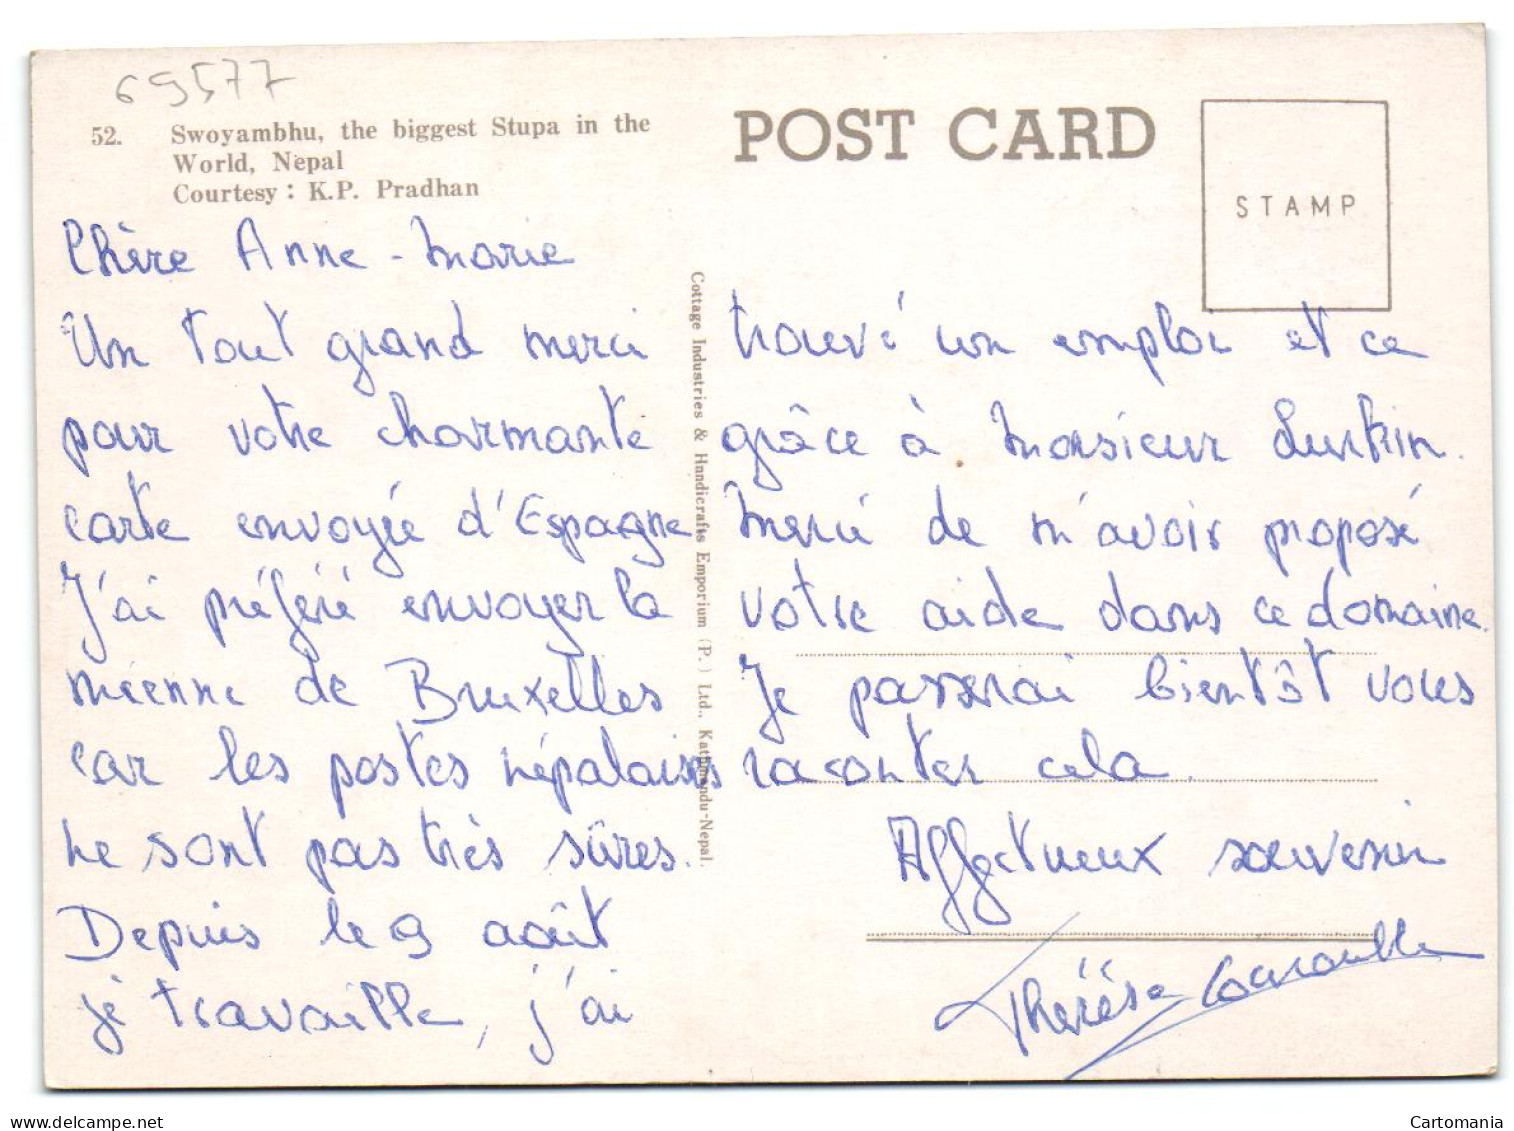 69577
52. Swoyambhu, the biggest Stupa in the
World, Nepal
Courtesy : K.P. Pradhan
POST CARD
STAMP
Chère Anne-Marie
Un tout grand merci
pour votre charmante
carte envoyée d'Espagne
J'ai préféré envoyer la
mienne de Bruxelles
car les postes népalaises
ne sont pas très sûres.
Depuis le 9 août
je travaille, j'ai
Cottage Industries & Handicrafts Emporium (P.) Ltd., Kathmandu-Nepal.
trouvé un emploi et ce
grâce à Monsieur
Merci de m'avoir proposé
votre aide dans ce domaine.
Je passerai bientôt vous
raconter cela.
Affectueux souvenir
Thérèse
delcampe.net
Cartomania